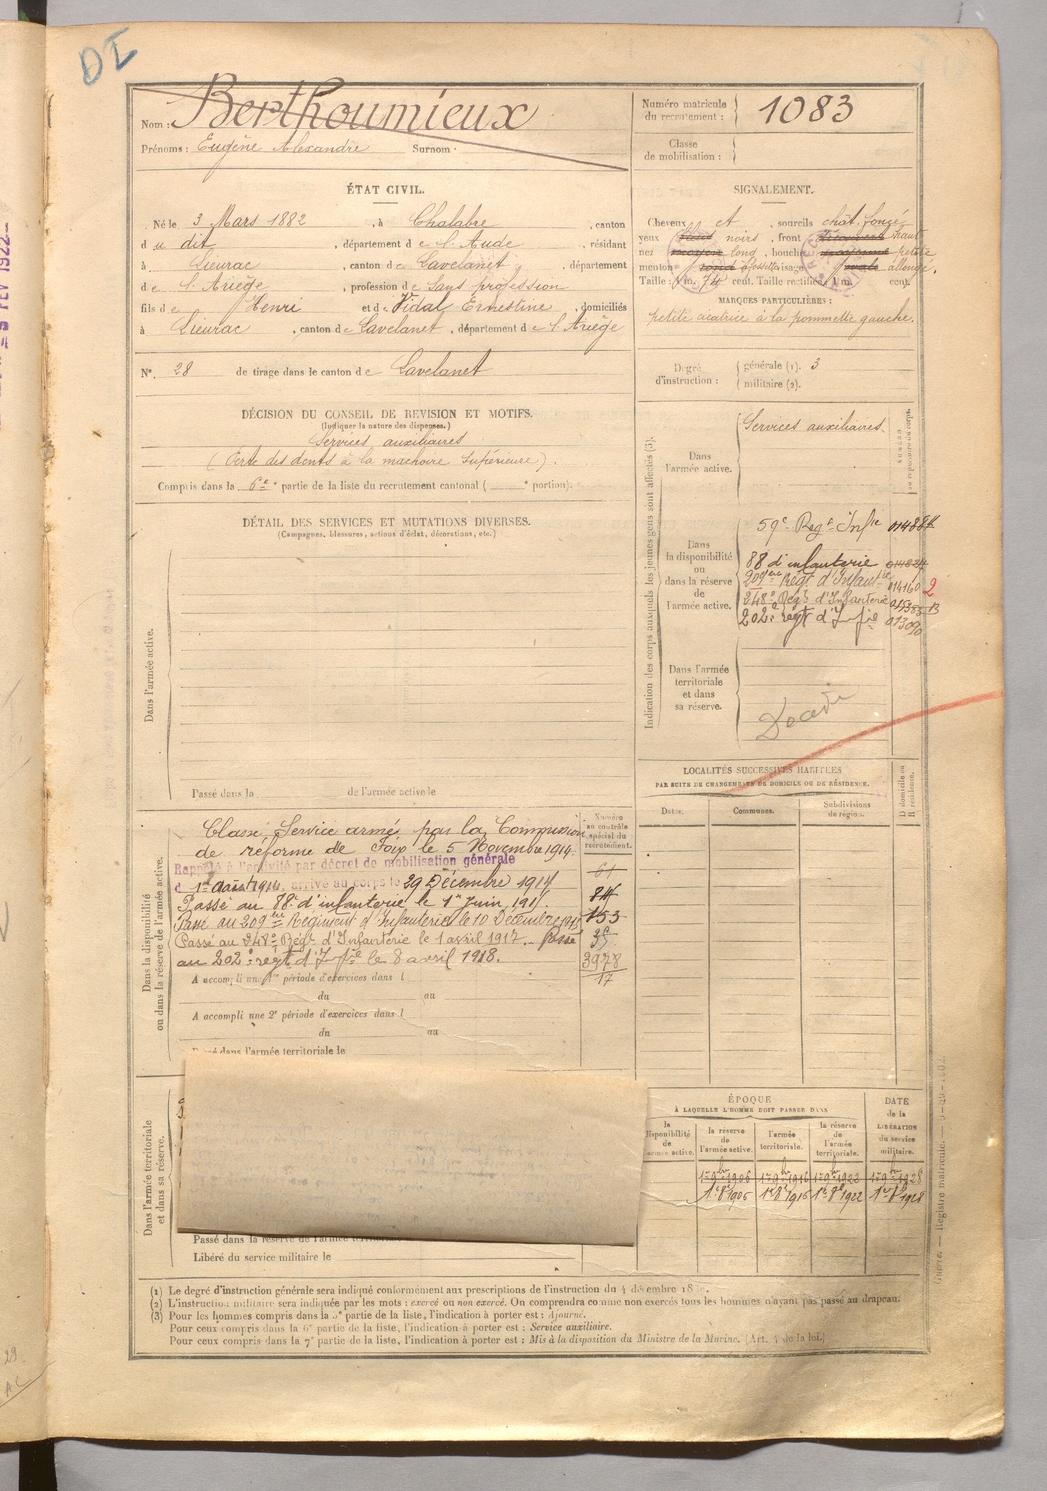 DI
Nom : Berthoumieux
Prénoms : Eugène Alexandre Surnom :
Numéro matricule du recrutement : 1083
Classe de mobilisation :
ÉTAT CIVIL.
Né le 3 Mars 1882, à Chalabre, canton
du dit, département de l'Aude, résidant
à Lieurac, canton de Lavelanet, département
de l'Ariège, profession de Sans profession
fils de Henri et de Vidal Ernestine, domiciliés
à Lieurac, canton de Lavelanet, département de l'Ariège
N° 28 de tirage dans le canton de Lavelanet
SIGNALEMENT.
Cheveux et, sourcils chât. foncé
yeux noirs, front haut
nez moyen long, bouche moyenne petite
menton rond à fossette visage ovale allongé.
Taille : 1 m. 74 cent. Taille rectifiée : 1 m. cent.
MARQUES PARTICULIÈRES :
petite cicatrice à la pommette gauche.
Degré d'instruction : générale (1). 3
militaire (2).
DÉCISION DU CONSEIL DE REVISION ET MOTIFS.
(Indiquer la nature des dispenses.)
Services auxiliaires
(Perte des dents à la machoire Supérieure).
Compris dans la 6e partie de la liste du recrutement cantonal ( portion).
DÉTAIL DES SERVICES ET MUTATIONS DIVERSES.
(Campagnes, blessures, actions d'éclat, décorations, etc.)
Dans l'armée active.
Passé dans la de l'armée active le
Indication des corps auxquels les jeunes gens sont affectés (3).
Dans l'armée active.
Services auxiliaires.
Dans la disponibilité ou dans la réserve de l'armée active.
59e Regt Infie
88 d'infanterie
209ème Régt d'Infantie 014160 2
248e Régt d'Infanterie
202e régt d'Infie 013090
Dans l'armée territoriale et dans sa réserve.
LOCALITÉS SUCCESSIVES HABITÉES
PAR SUITE DE CHANGEMENTS DE DOMICILE OU DE RÉSIDENCE.
Dates. Communes. Subdivisions de région. D domicile ou R résidence.
Dans la disponibilité ou dans la réserve de l'armée active.
Numéro au contrôle spécial du recrutement.
Classé Service armé par la Commission
de réforme de Foix le 5 Novembre 1914.
Rappelé à l'activité par décret de mobilisation générale
d 1er août 1914, arrivé au corps le 29 Décembre 1914
Passé au 88e d'infanterie le 1er Juin 1915.
Passé au 209ème Régiment d'Infanterie le 10 Décembre 1915
Passé au 248e Régt d'Infanterie le 1 avril 1917. Passé
au 202e régt d'Infie le 8 avril 1918.
61
153
35
3978
17
A accompli une 1re période d'exercices dans l
du au
A accompli une 2e période d'exercices dans l
du au
Passé dans l'armée territoriale le
Dans l'armée territoriale et dans sa réserve.
Passé dans la réserve de l'armée territoriale
Libéré du service militaire le
ÉPOQUE
À LAQUELLE L'HOMME DOIT PASSER DANS
la disponibilité de l'armée active.
la réserve de l'armée active.
l'armée territoriale.
la réserve de l'armée territoriale.
DATE de la LIBÉRATION du service militaire.
1er 9bre 1906 1er 9bre 1916 1er 9bre 1922 1er 9bre 1928
1er 8e 1906 1er 8e 1916 1er 8e 1922 1er 8e 1928
(1) Le degré d'instruction générale sera indiqué conformément aux prescriptions de l'instruction du 4 décembre
(2) L'instruction militaire sera indiquée par les mots : exercé ou non exercé. On comprendra comme non exercés tous les hommes n'ayant pas passé au drapeau.
(3) Pour les hommes compris dans la 5e partie de la liste, l'indication à porter est : Ajourné.
Pour ceux compris dans la 6e partie de la liste, l'indication à porter est : Service auxiliaire.
Pour ceux compris dans la 7e partie de la liste, l'indication à porter est : Mis à la disposition du Ministre de la Marine. (Art. 4 de la loi.)